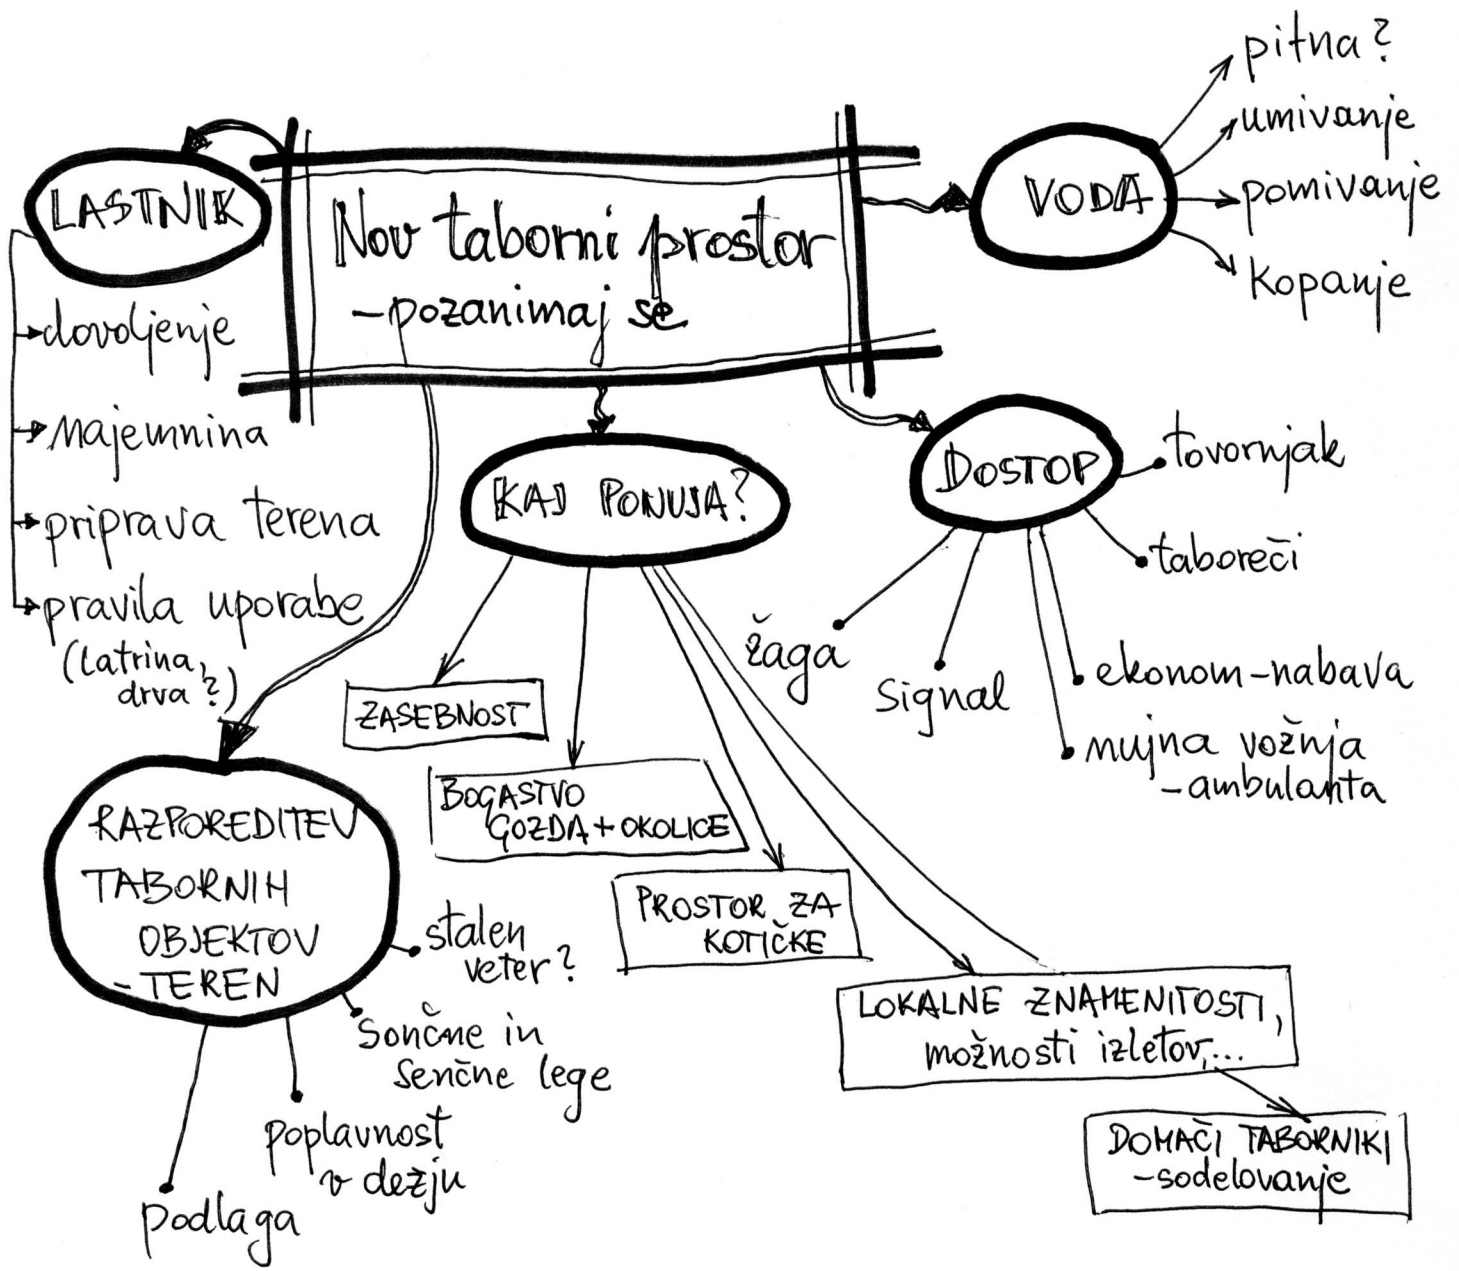 Nov taborni prostor
-pozanimaj se
LASTNIK
dovoljenje
najemnina
priprava terena
pravila uporabe
(latrina,
drva?)
VODA
pitna?
umivanje
pomivanje
kopanje
DOSTOP
tovornjak
taboreči
ekonom-nabava
nujna vožnja
-ambulanta
signal
žaga
KAJ PONUJA?
ZASEBNOST
BOGASTVO
GOZDA+OKOLICE
PROSTOR ZA
KOTIČKE
LOKALNE ZNAMENITOSTI,
možnosti izletov,...
DOMAČI TABORNIKI
-sodelovanje
RAZPOREDITEV
TABORNIH
OBJEKTOV
-TEREN
stalen
veter?
sončne in
senčne lege
poplavnost
v dežju
podlaga